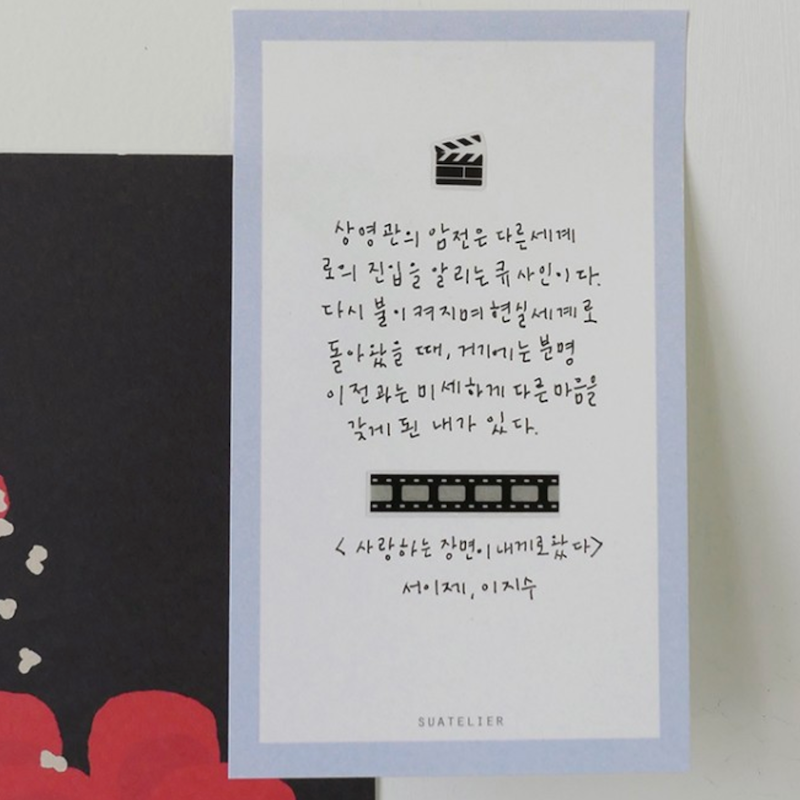 상영관의 암전은 다른세계
로의 진입을 알리는 큐 사인이다.
다시 불이 켜지며 현실세계로
돌아왔을 때, 거기에는 분명
이전과는 미세하게 다른 마음을
갖게 된 내가 있다.
<사랑하는 장면이 내게로 왔다>
서이제, 이지수
SUATELIER